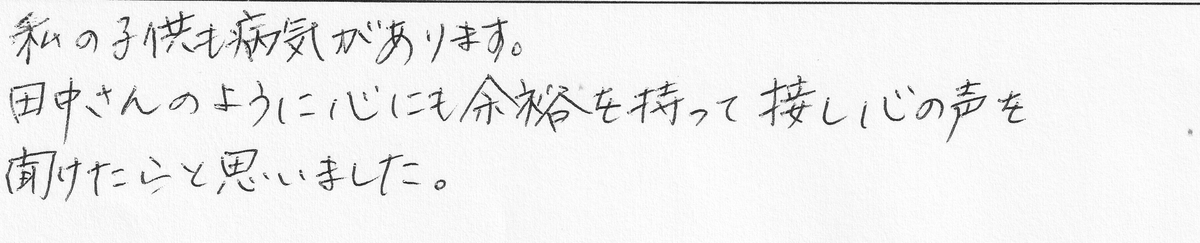 私の子供も病気があります。
田中さんのように心にも余裕を持って接し心の声を
聞けたらと思いました。